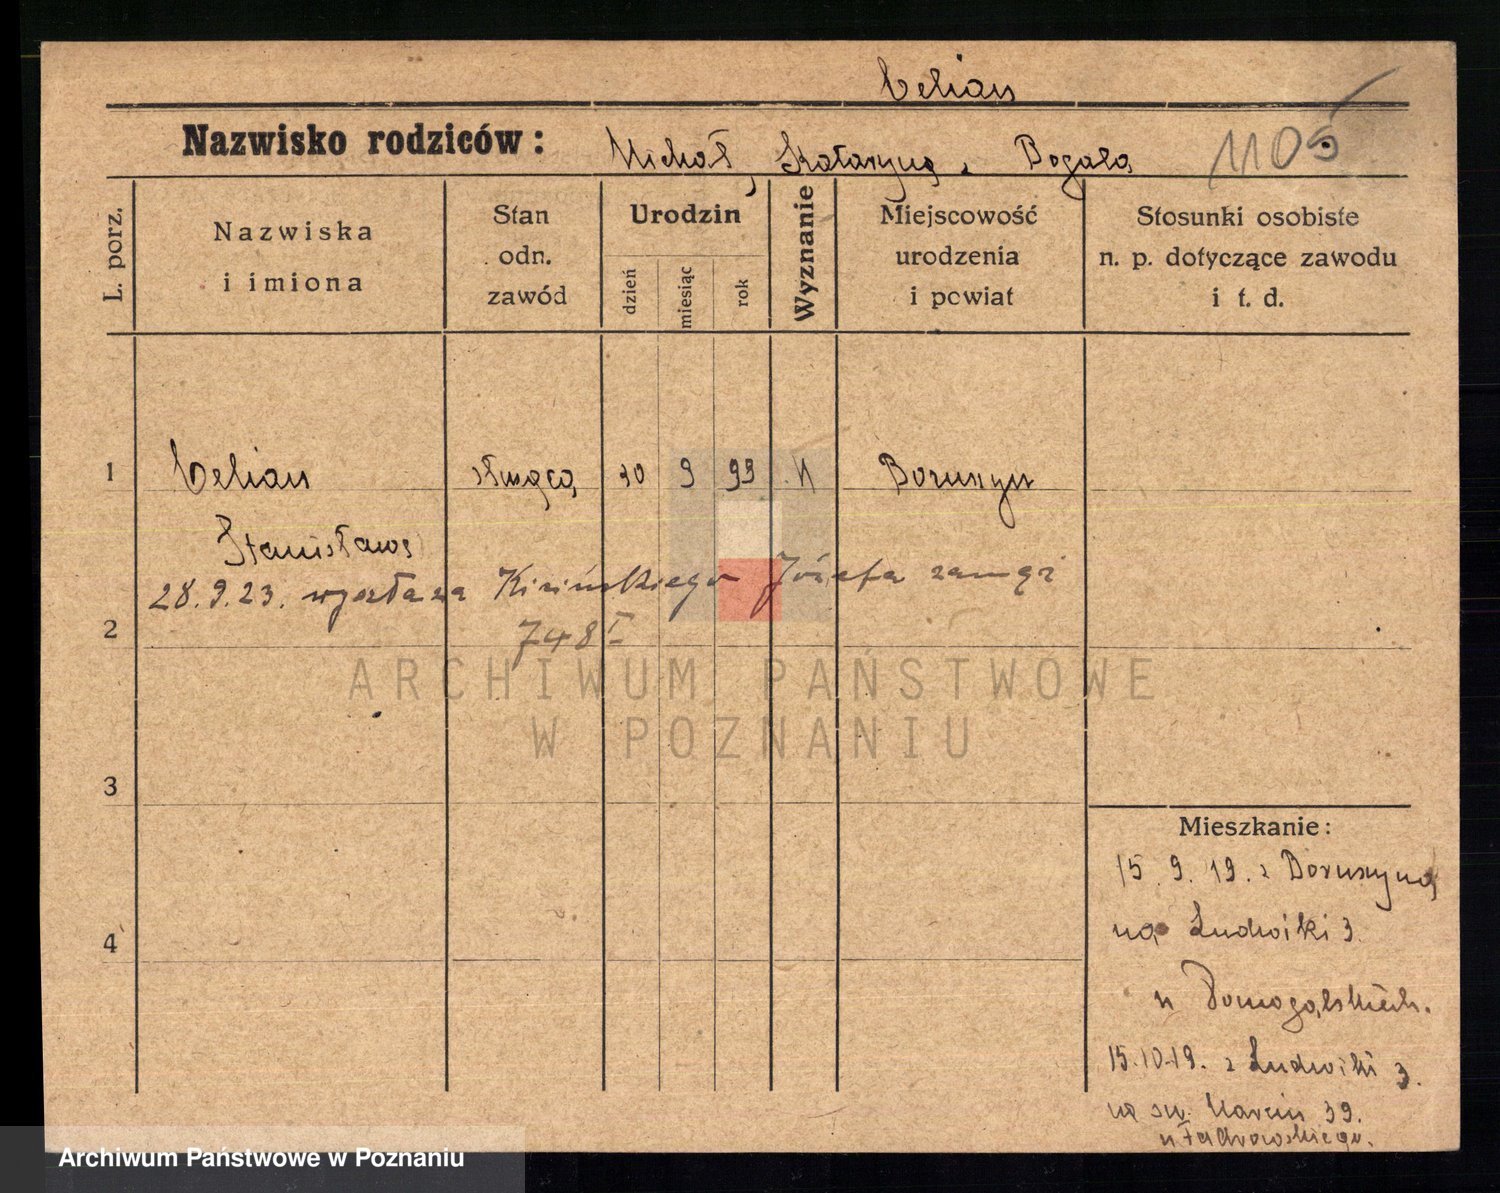 Celian
Nazwisko rodziców: Michał, Katarzyna z Bogala
1105
L. porz.
Nazwiska
i imiona
Stan
odn.
zawód
Urodzin
dzień
miesiąc
rok
Wyznanie
Miejscowość
urodzenia
i powiat
Stosunki osobiste
n. p. dotyczące zawodu
i t. d.
1 Celian służąca 9 99 Boruszyn
Stanisława
28.9.23. wyszła za Kisińskiego Józefa zamąż
2
748 I
3
4
Mieszkanie:
15. 9. 19. z Boruszyna
na Ludwiki 3.
u Domogalskich.
15.10.19. z Ludwiki 3.
na św. Marcin 39.
ARCHIWUM PAŃSTWOWE
W POZNANIU
Archiwum Państwowe w Poznaniu